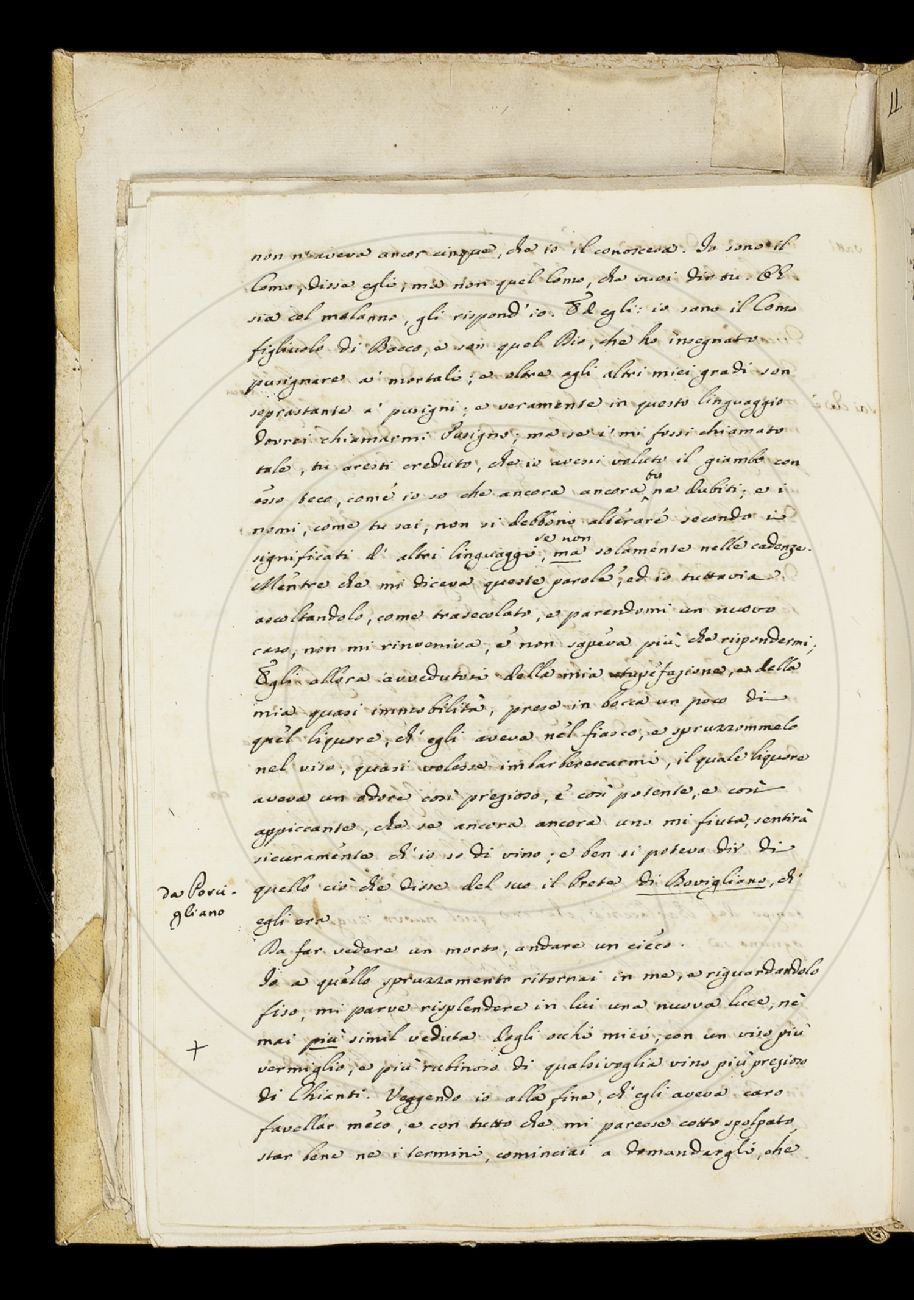 non n'aveva ancor cinque, che io il conosceva. Io sono il
Como, disse egli, ma non quel Como, che vuoi dir tu. Oh
sia col malanno, gli rispond'io. Ed egli: io sono il Como
figliuolo di Bacco, e son quel Dio, che ho insegnato
pusignare a' mortali; e oltre agli altri miei gradi son
soprastante a' pusigni; e veramente in questo linguaggio
dovrei chiamarmi Pusigno; ma se i' mi fossi chiamato
tale, tu aresti creduto, che io avessi voluto il giambo con
esso teco, come io so che ancora ancora tu ne dubiti; e i
nomi, come tu sai, non si debbono alterare secondo i
significati d' altri linguaggi, se non ma solamente nelle cadenze.
Mentre che mi diceva queste parole, ed io tuttavia
ascoltandolo, come trasecolato, e parendomi un nuovo
caso, non mi rinveniva, e non sapeva più che rispondermi;
Egli allora avvedutosi della mia stupefazione, e della
mia quasi immobilità, prese in bocca un poco di
quel liquore, ch' egli aveva nel fiasco, e spruzzommelo
nel viso, quasi volesse imbarberescarmi, il quale liquore
aveva un odore così prezioso, e così potente, e così
appiccante, che se ancora ancora uno mi fiuta, sentirà
sicuramente ch' io so di vino; e ben si poteva dir di
quello ciò che disse del suo il Prete di Bovigliano, ch'
da Porci-
gliano
egli era
Da far vedere un morto, andare un cieco.
Io a quello spruzzamento ritornai in me, e riguardandolo
fiso, mi parve risplendere in lui una nuova luce, nè
+
mai più simil veduta dagli occhi miei, con un viso più
vermiglio, e più rubinoso di qualsivoglia vino più prezioso
di Chianti. Veggendo io alla fine, ch' egli aveva caro
favellar meco, e con tutto che mi paresse cotto spolpato,
star bene ne i termini, cominciai a domandargli, che
11